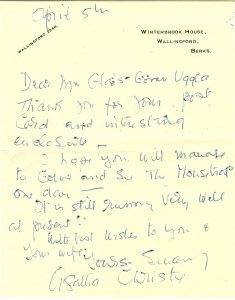 April 5th
WALLINGFORD 2248.
WINTERBROOK HOUSE,
WALLINGFORD,
BERKS.
Dear Mr Claes-Göran Uggla
Thank you for your post
card and interesting
enclosure –
I hope you will manage
to come and see The Mousetrap
one day –
It is still running very well
at present!
With best wishes to you &
your wife
Yours Sincerely
Agatha Christie